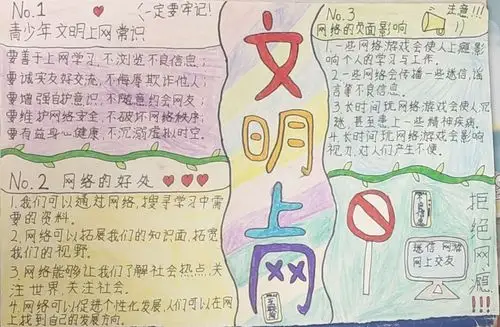 No.1
一定要牢记!
青少年文明上网常识
要善于上网学习,不浏览不良信息;
要诚实友好交流,不侮辱欺诈他人;
要增强自护意识,不随意约会网友;
要维护网络安全,不破坏网络秩序;
要有益身心健康,不沉溺虚拟时空。
No.2 网络的好处
1.我们可以通过网络,搜寻学习中需
要的资料。
2.网络可以拓展我们的知识面,拓宽
我们的视野。
3.网络能够让我们了解社会热点,关
注世界,关注社会。
4.网络可以促进个性化发展,人们可以在网
上找到自己的发展方向。
文明上网
No.3
注意!!!
网络的负面影响
1.一些网络游戏会使人上瘾,影
响个人的学习与工作。
2.一些网络会传播一些迷信,谣
言等不良信息。
3.长时间玩网络游戏会使人沉
迷,甚至患上一些精神疾病。
4.长时间玩网络游戏会影响
视力,对人们产生不便。
迷信 网络
网上交友
拒绝网瘾!!!